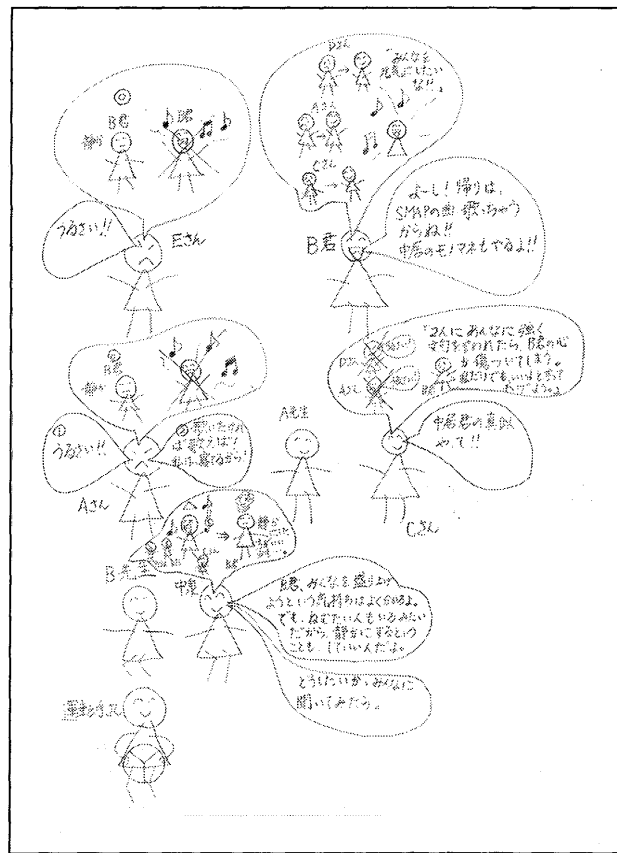 ◎
B君
静か
B君
うるさい!!
Eさん
Dさん
「みんなを
元気にしたい
な!!」
Aさん
Cさん
B君
よ〜し!帰りは、
SMAPの曲歌っちゃう
からね!!
中居のモノマネもやるよ!!
B君
静か
①
うるさい!!
②歌いたけれ
ば歌えば!
私は寝てるから!
Aさん
A先生
Dさん
Aさん
「2人にあんなに強く
文句を言われたら、B君の心
が傷ついてしまう。
中居君の真似
やって!!
Cさん
B先生
中泉
B君、みんなを盛り上げ
ようという気持ちはよく分かるよ。
でも、ねむたい人もいるみたい
だから、静かにするという
ことも、していいんだよ。
どうしたいか、みんなに
聞いてみたら。
運転手さん